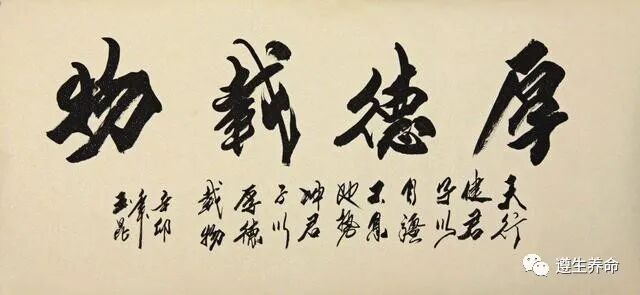 厚德載物
天行
健君
子以
自強
不息
地勢
坤君
子以
厚德
載物
辛卯
年
遵生养命